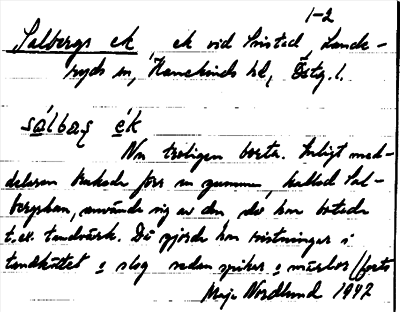 1-2
Salbergs ek, ek vid Smedstad, Lands-
ryds sn, Hanekinds hd, Östg. l.
sálbaş é̱k
Nu troligen borta. Enligt med-
delaren brukade förr en gumma, kallad Sal-
bergskan, använda sig av den, då hon botade
t.ex. tandvärk. Då gjorde hon ristningar i
tandköttet o slog sedan spikar o märlor (forts
Maja Nordlund 1942